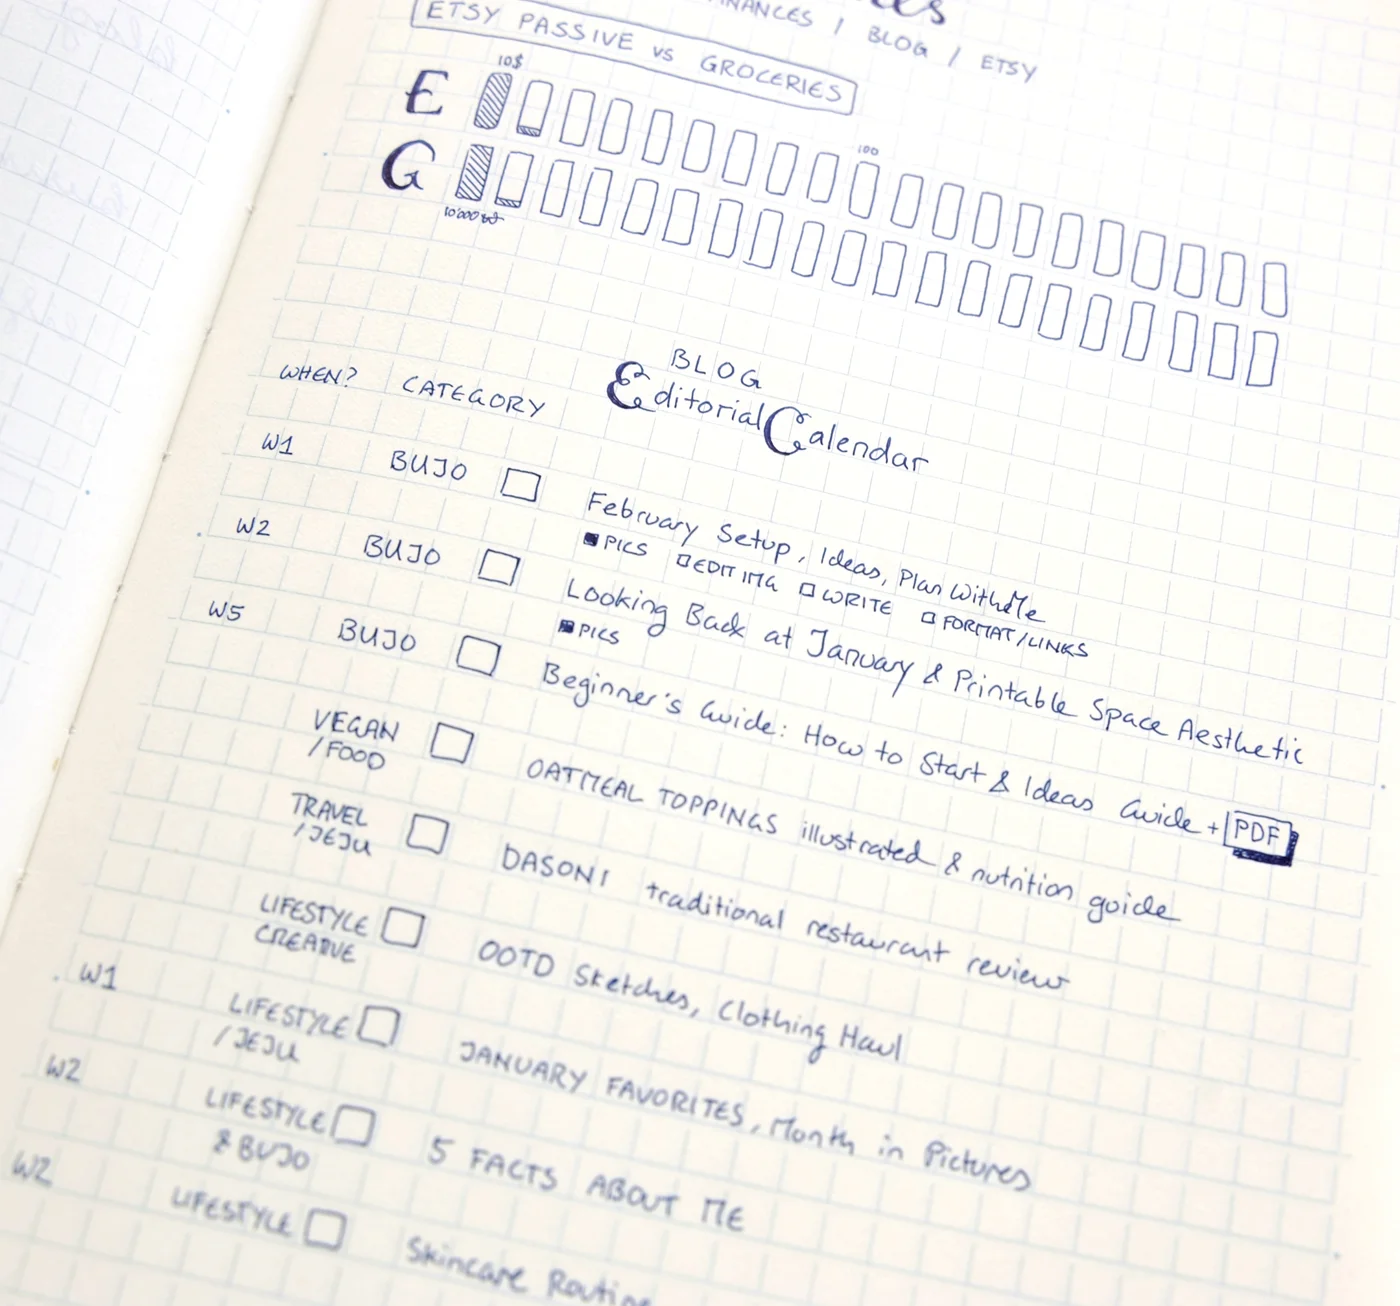 FINANCES / BLOG / ETSY
ETSY PASSIVE vs GROCERIES
10$
E
100
G
10'000₩
BLOG
Editorial Calendar
WHEN? CATEGORY
W1 BUJO February Setup, Ideas, Plan With Me
PICS EDITING WRITE FORMAT/LINKS
W2 BUJO Looking Back at January & Printable Space Aesthetic
PICS
W5 BUJO Beginner's Guide: How to Start & Ideas Guide + PDF
VEGAN
/FOOD OATMEAL TOPPINGS illustrated & nutrition guide
TRAVEL
/JEJU DASONI traditional restaurant review
LIFESTYLE
CREATIVE OOTD Sketches, Clothing Haul
W1 LIFESTYLE
/JEJU JANUARY FAVORITES, Month in Pictures
W2 LIFESTYLE
& BUJO 5 FACTS ABOUT ME
W2 LIFESTYLE Skincare Routine